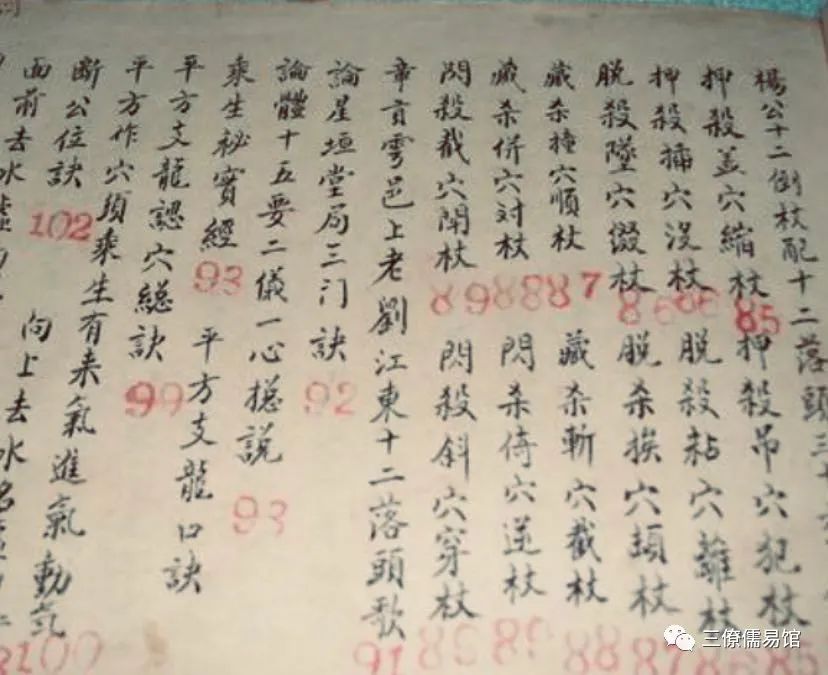 楊公十二倒杖配十二落頭三十
押殺盖穴縮杖 85 押殺吊穴犯杖 85
押殺插穴没杖 86 脱殺粘穴離杖 86
脱殺墜穴綴杖 86 脱杀挨穴頓杖 87
藏杀撞穴順杖 87 藏杀斬穴截杖 88
藏杀併穴对杖 88 閃杀倚穴逆杖 89
閃殺截穴開杖 89 閃殺斜穴穿杖 89
章贡雩邑上老劉江東十二落頭歌 91
論星垣堂局三门訣 92
論體十五要二儀一心摠説 93
乘生祕寳經 93 平方支龍口訣
平方支龍認穴縂訣 99
平方作穴須乘生有来氣進氣動氣 100
断公位訣 102 向上去水
面前去水
三僚儒易馆